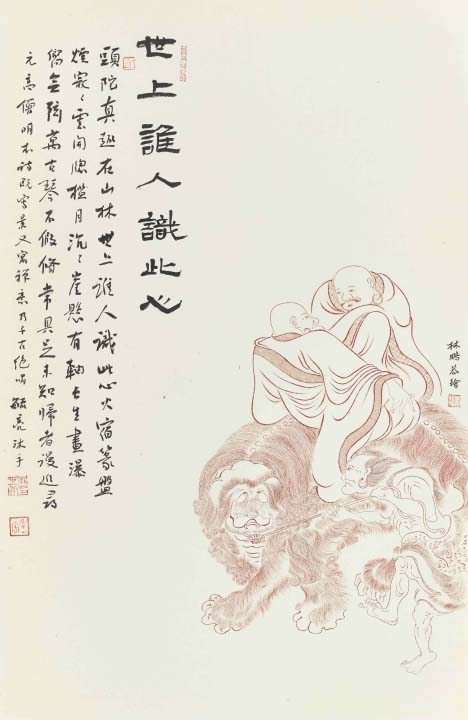 世上誰人識此心
頭陀真趣在山林世上誰人識此心火宿篆盤
煙寂〻雲開牕檻月沉〻崖懸有軸長生畫瀑
響無絃萬古琴不假修常具足未知歸者謾追尋
元高僧明本詩既寫景又寓禪意乃千古絕唱毓亮沐手
林皓恭繪